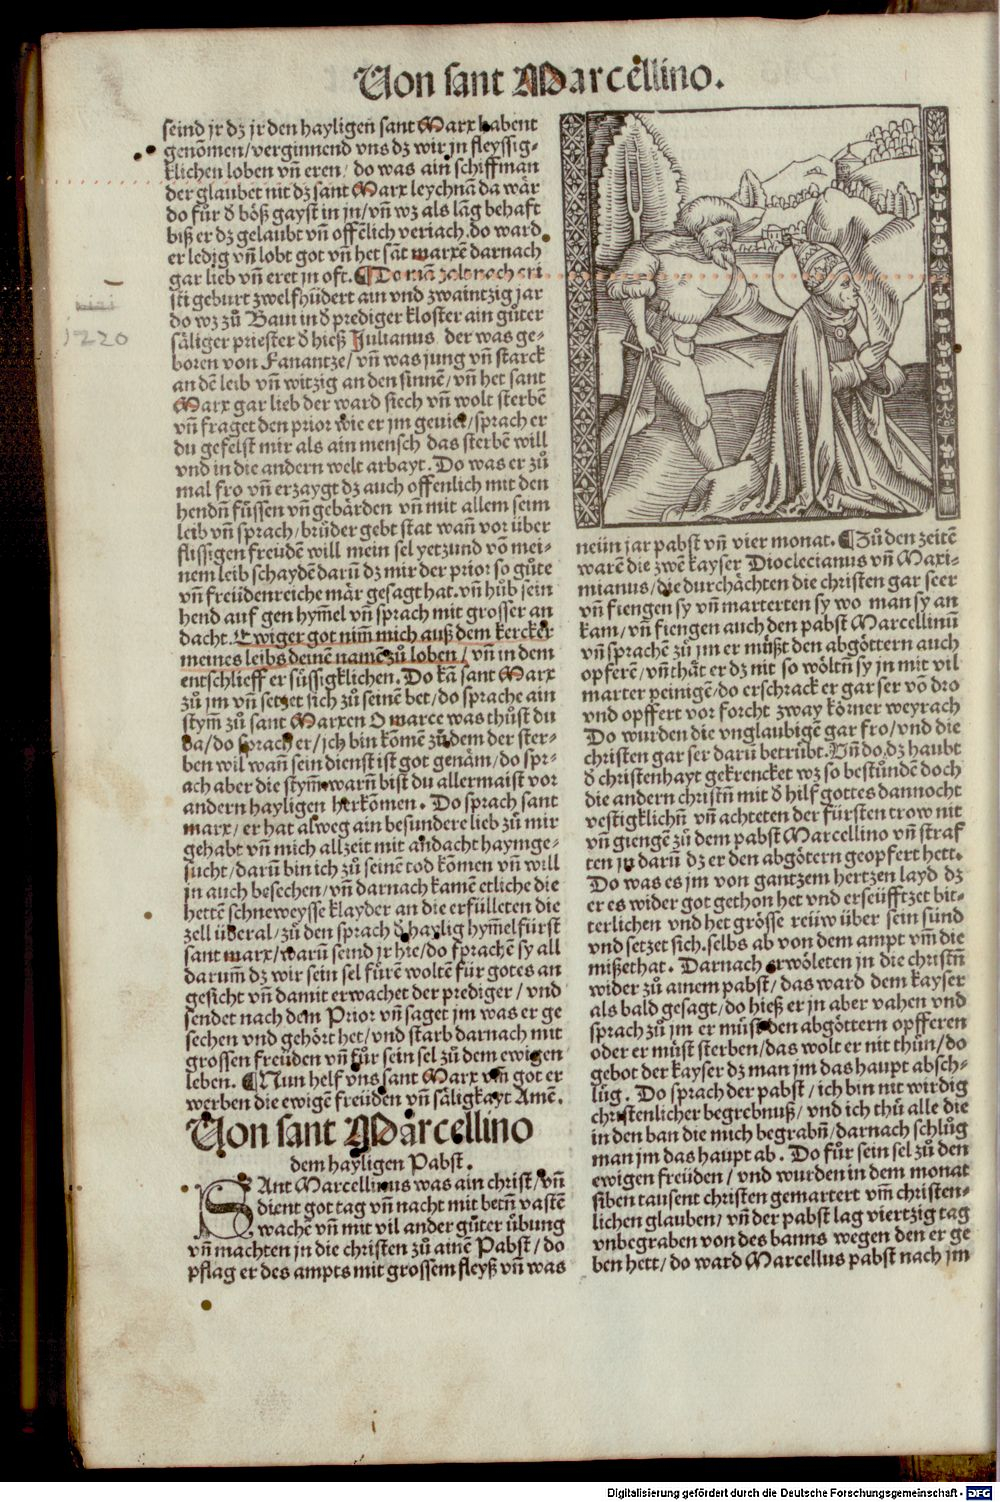 Von sant Marcellino.
seind jr dz jr den hayligen sant Marx habent
genōmen/verginnend vns dz wir jn fleyssig-
klichen loben vn̄ eren/ do was ain schiffman
der glaubet nit dz sant Marx leychnā da wär
do fůr d böß gayst in jn/vn̄ wz als lāg behaft
biß er dz gelaubt vn̄ offēlich veriach. do ward
er ledig vn̄ lobt got vn̄ het sāt marxē darnach
gar lieb vn̄ eret jn oft. ¶ Do mā zalt nach cri
sti geburt zwelfhūdert ain vnd zwaintzig jar
do wz zů in d prediger kloster ain gůter
säliger priester d hieß Julianus der was ge-
boren von Fanantze/ vn̄ was jung vn̄ starck
an dē leib vn̄ witzig an den sinnē/ vn̄ het sant
Marx gar lieb der ward siech vn̄ wolt sterbē
vn̄ fraget den prior wie er im geuiel/sprach er
du gefelst mir als ain mensch das sterbē will
vnd in die andern welt arbayt. Do was er zů
mal fro vn̄ erzaygt dz auch offenlich mit den
hendn̄ füssen vn̄ gebärden vn̄ mit allem seim
leib vn̄ sprach/ brüder gebt stat wan̄ vor über
flissigen freüdē will mein sel yetzund vō mei-
nem leib schaydē darū dz mir der prior so gůte
vn̄ freüdenreiche mär gesagt hat. vn̄ hůb sein
hend auf gen hym̄el vn̄ sprach mit grosser an
dacht. Ewiger got nim̄ mich auß dem kercker
meines leibs deinē namē zů loben/ vn̄ in dem
entschlieff er süssigklichen. Do kā sant Marx
zů jm vn̄ setzet sich zů seinē bet/ do sprache ain
stym̄ zů sant Marxen O marce was thůst du
da/do sprach er/ ich bin kōmē zů dem der ster-
ben wil wan̄ sein dienst ist got genäm/ do spr-
ach aber die stym̄ warn̄ bist du allermaist vor
andern hayligen herkōmen. Do sprach sant
marx/ er hat alweg ain besundere lieb zů mir
gehabt vn̄ mich allzeit mit andacht haymge-
sucht/ darū bin ich zů seinē tod kōmen vn̄ will
jn auch besechen/ vn̄ darnach kamē etliche die
hettē schneweysse klayder an die erfülleten die
zell überal/ zů den sprach d haylig hym̄elfürst
sant marx/ warū seind jr hie/ do sprachē sy all
darum̄ dz wir sein sel fürē woltē für gotes an
gesicht vn̄ damit erwachet der prediger/ vnd
sendet nach dem Prior vn̄ saget im was er ge
sechen vnd gehört het/ vnd starb darnach mit
grossen freüden vn̄ fůr sein sel zů dem ewigen
leben. ¶ Nun helf vns sant Marx vm̄ got er
werben die ewigē freüden vn̄ säligkayt Amē.
Von sant Marcellino
dem hayligen Pabst.
SAnt Marcellinus was ain christ/ vn̄
dient got tag vn̄ nacht mit betn̄ vastē
wachē vn̄ mit vil ander gůter übung
vn̄ machten jn die christen zů ainē Pabst/ do
pflag er des ampts mit grossem fleyß vn̄ was
1220
neün jar pabst vn̄ vier monat. ¶ Zů den zeitē
warē die zwē kayser Dioclecianus vn̄ Maxi-
mianus/ die durchächten die christen gar seer
vn̄ fiengen sy vn̄ marterten sy wo man sy an
kam/ vn̄ fiengen auch den pabst Marcellinū
vn̄ sprachē zů im er müßt den abgöttern auch
opferē/ vn̄ thät er dz nit so wöltn̄ sy jn mit vil
marter peinigē/ do erschrack er gar ser vō dro
vnd opffert vor forcht zway körner weyrach
Do wurden die vnglaubigē gar fro/ vnd die
christen gar ser darū betrübt. Vn̄ do dz haubt
d christenhayt gekrencket wz so bestůndē doch
die andern christn̄ mit d hilf gottes dannocht
vestigklichn̄ vn̄ achteten der fürsten trow nit
vn̄ giengē zů dem pabst Marcellino vn̄ straf
ten jn darū dz er den abgötern geopfert hett.
Do was es jm von gantzem hertzen layd dz
er es wider got gethon het vnd erseüfftzet bit-
terlichen vnd het grösse reüw über sein sünd
vnd setzet sich selbs ab von dem ampt vm̄ die
mißethat. Darnach erwöleten jn die christn̄
wider zů ainem pabst/ das ward dem kayser
als bald gesagt/ do hieß er jn aber vahen vnd
sprach zů jm er müst den abgöttern opfferen
oder er müst sterben/ das wolt er nit thůn/ do
gebot der kayser dz man jm das haupt absch-
lůg. Do sprach der pabst/ ich bin nit wirdig
christenlicher begrebnuß/ vnd ich thů alle die
in den ban die mich begrabn̄/ darnach schlůg
man jm das haupt ab. Do fůr sein sel zů den
ewigen freüden/ vnd wurden in dem monat
siben tausent christen gemartert vm̄ christen-
lichen glauben/ vn̄ der pabst lag viertzig tag
vnbegraben von des banns wegen den er ge
ben hett/ do ward Marcellus pabst nach jm
Digitalisierung gefördert durch die Deutsche Forschungsgemeinschaft - DFG